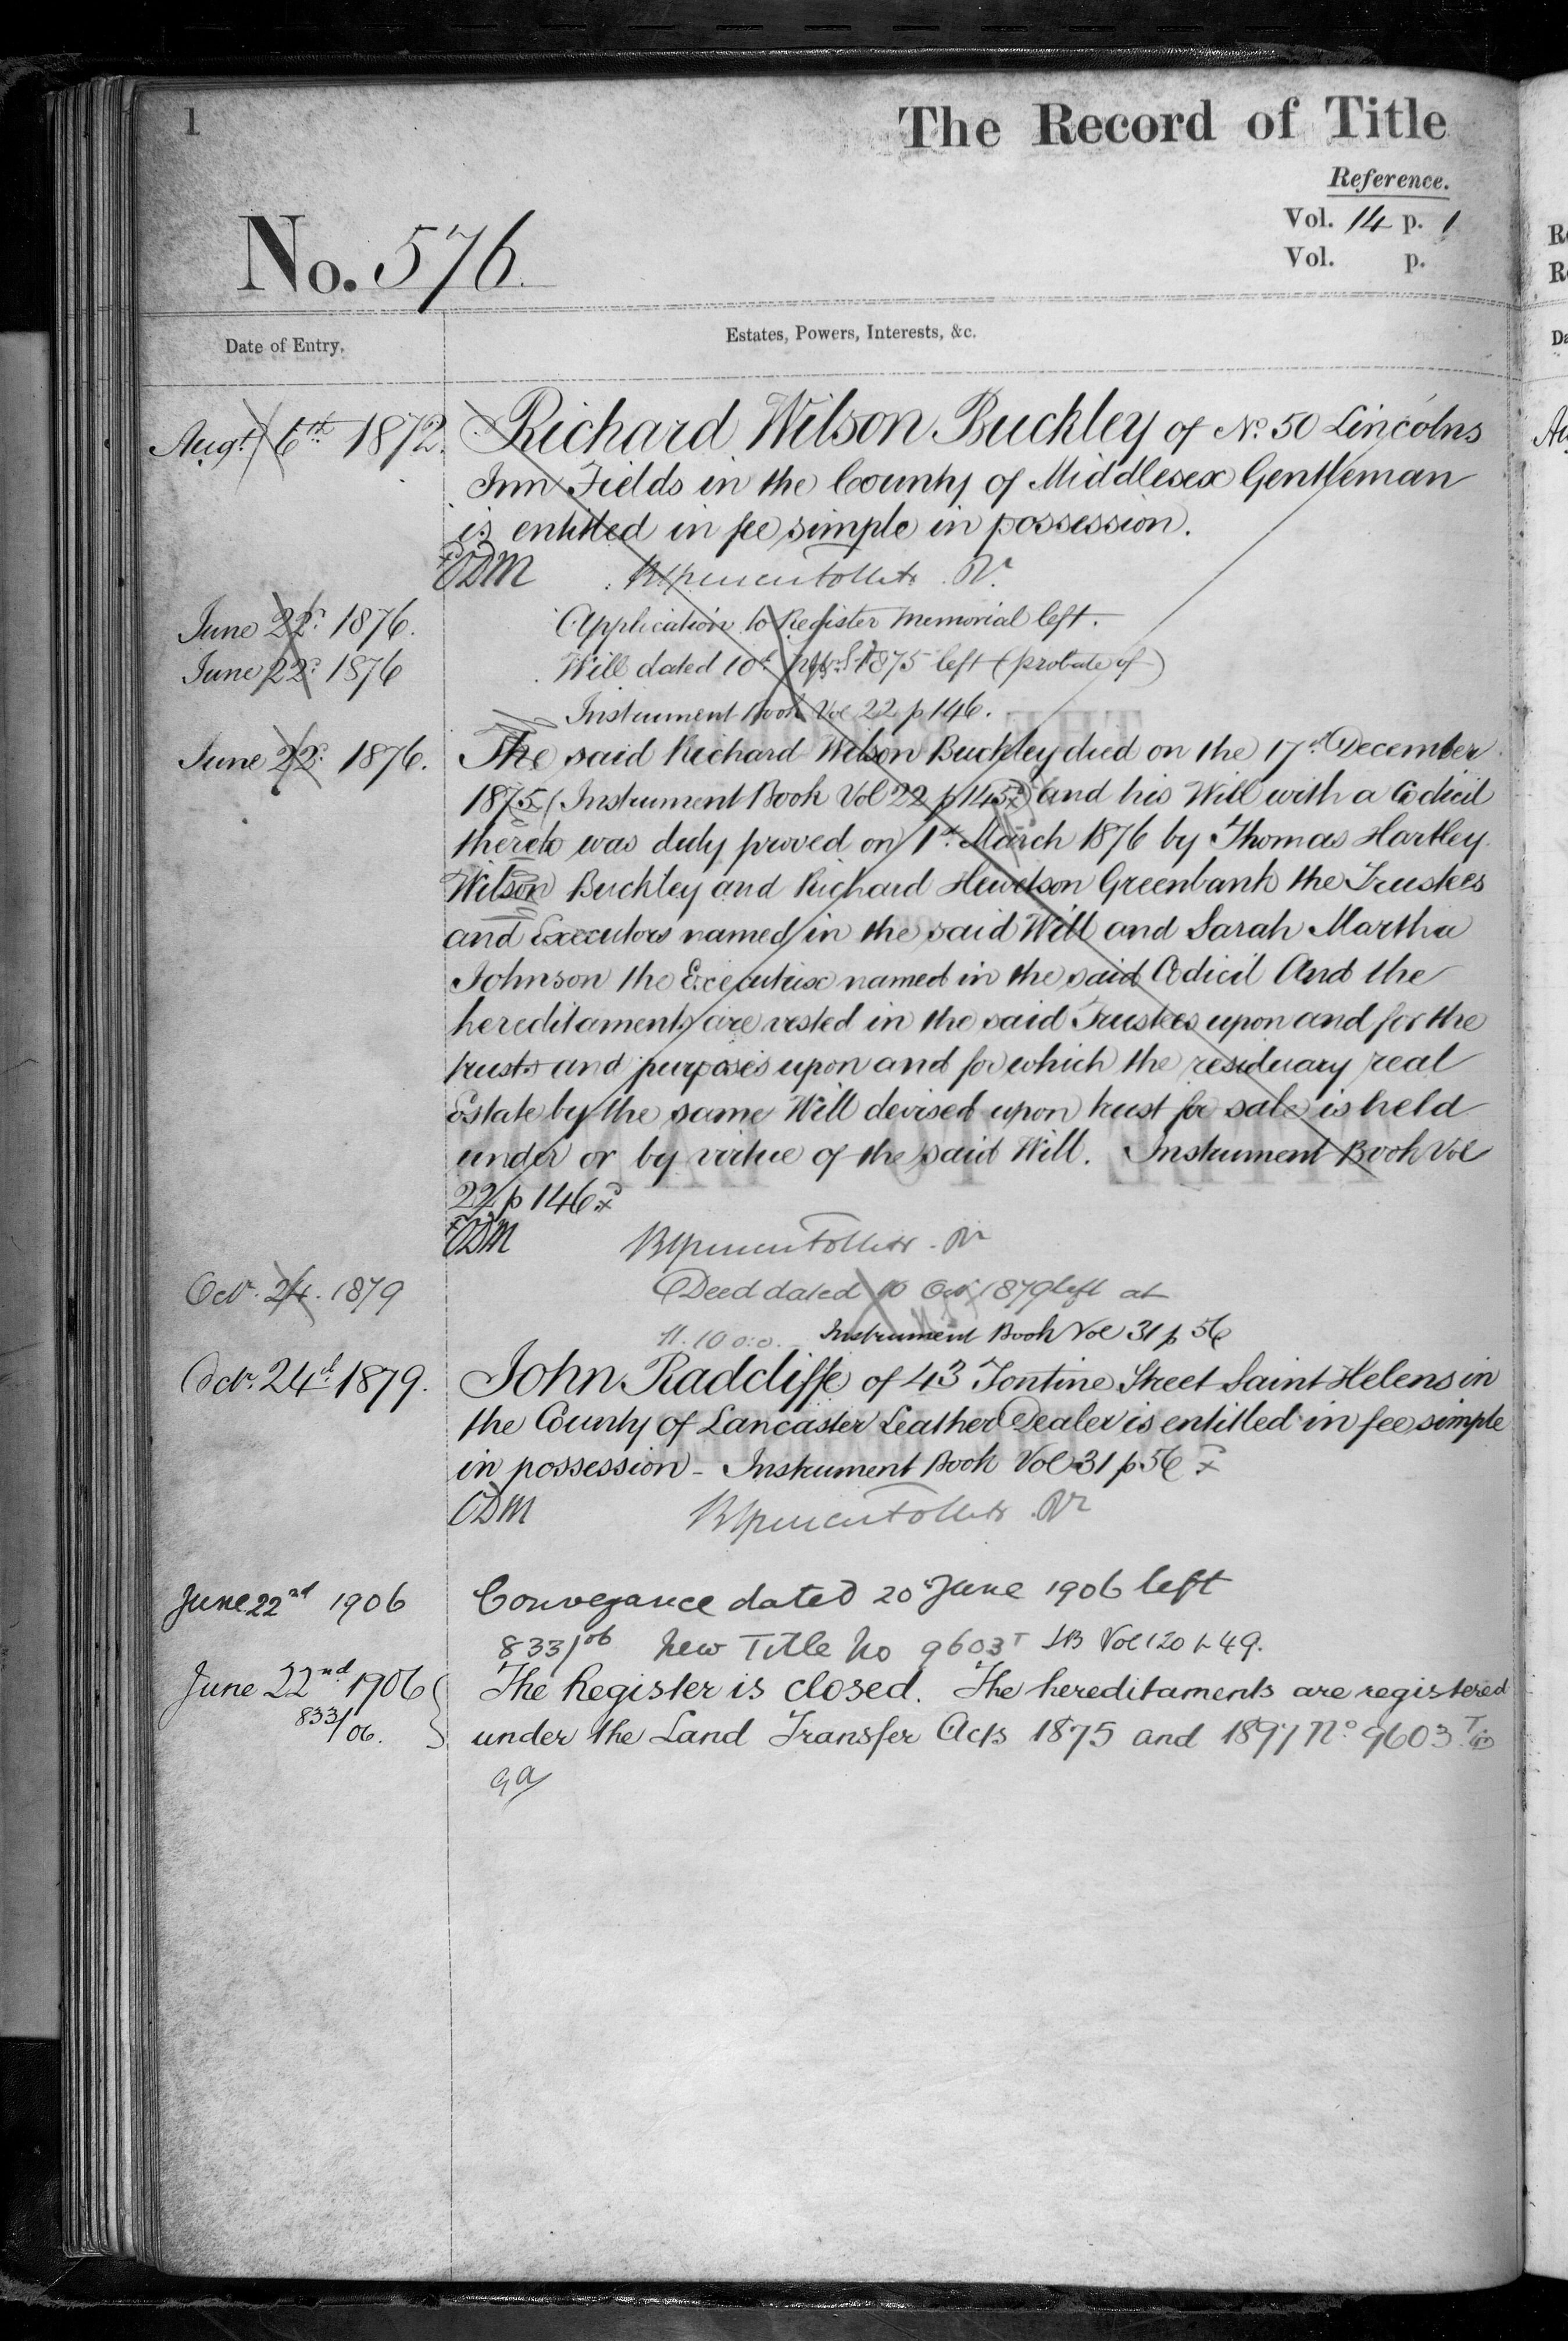 1
The Record of Title
Reference.
Vol. 14 p. 1
Vol. p.
No. 576.
Date of Entry.
Estates, Powers, Interests, &c.
Augt. 6th 1872. Richard Wilson Buckley of No. 50 Lincolns
Inn Fields in the County of Middlesex Gentleman
is entitled in fee simple in possession.
ODM
June 22d 1876. Application to Register Memorial left.
June 22d 1876 Will dated 10th 1875 left (probate of)
Instrument Book Vol 22 p 146.
June 22d 1876. The said Richard Wilson Buckley died on the 17th December
1875 (Instrument Book Vol 22 p 145) and his Will with a Codicil
thereto was duly proved on 1st March 1876 by Thomas Hartley
Wilson Buckley and Richard Hewetson Greenbank the Trustees
and Executors named in the said Will and Sarah Martha
Johnson the Executrix named in the said Codicil And the
hereditaments are vested in the said Trustees upon and for the
trusts and purposes upon and for which the residuary real
Estate by the same Will devised upon trust for sale is held
under or by virtue of the said Will. Instrument Book Vol
22 p 146
ODM
Octr. 24. 1879 Deed dated 10 Oct 1879 left at
11.10 o.c. Instrument Book Vol 31 p 56
Octr. 24th 1879. John Radcliffe of 43 Tontine Street Saint Helens in
the County of Lancaster Leather Dealer is entitled in fee simple
in possession - Instrument Book Vol 31 p 56
ODM
June 22nd 1906 Conveyance dated 20 June 1906 left
833/06 New Title No 9603 IB Vol 120 p 49.
June 22nd 1906 The Register is closed. The hereditaments are registered
833/06. under the Land Transfer Acts 1875 and 1897 No. 9603